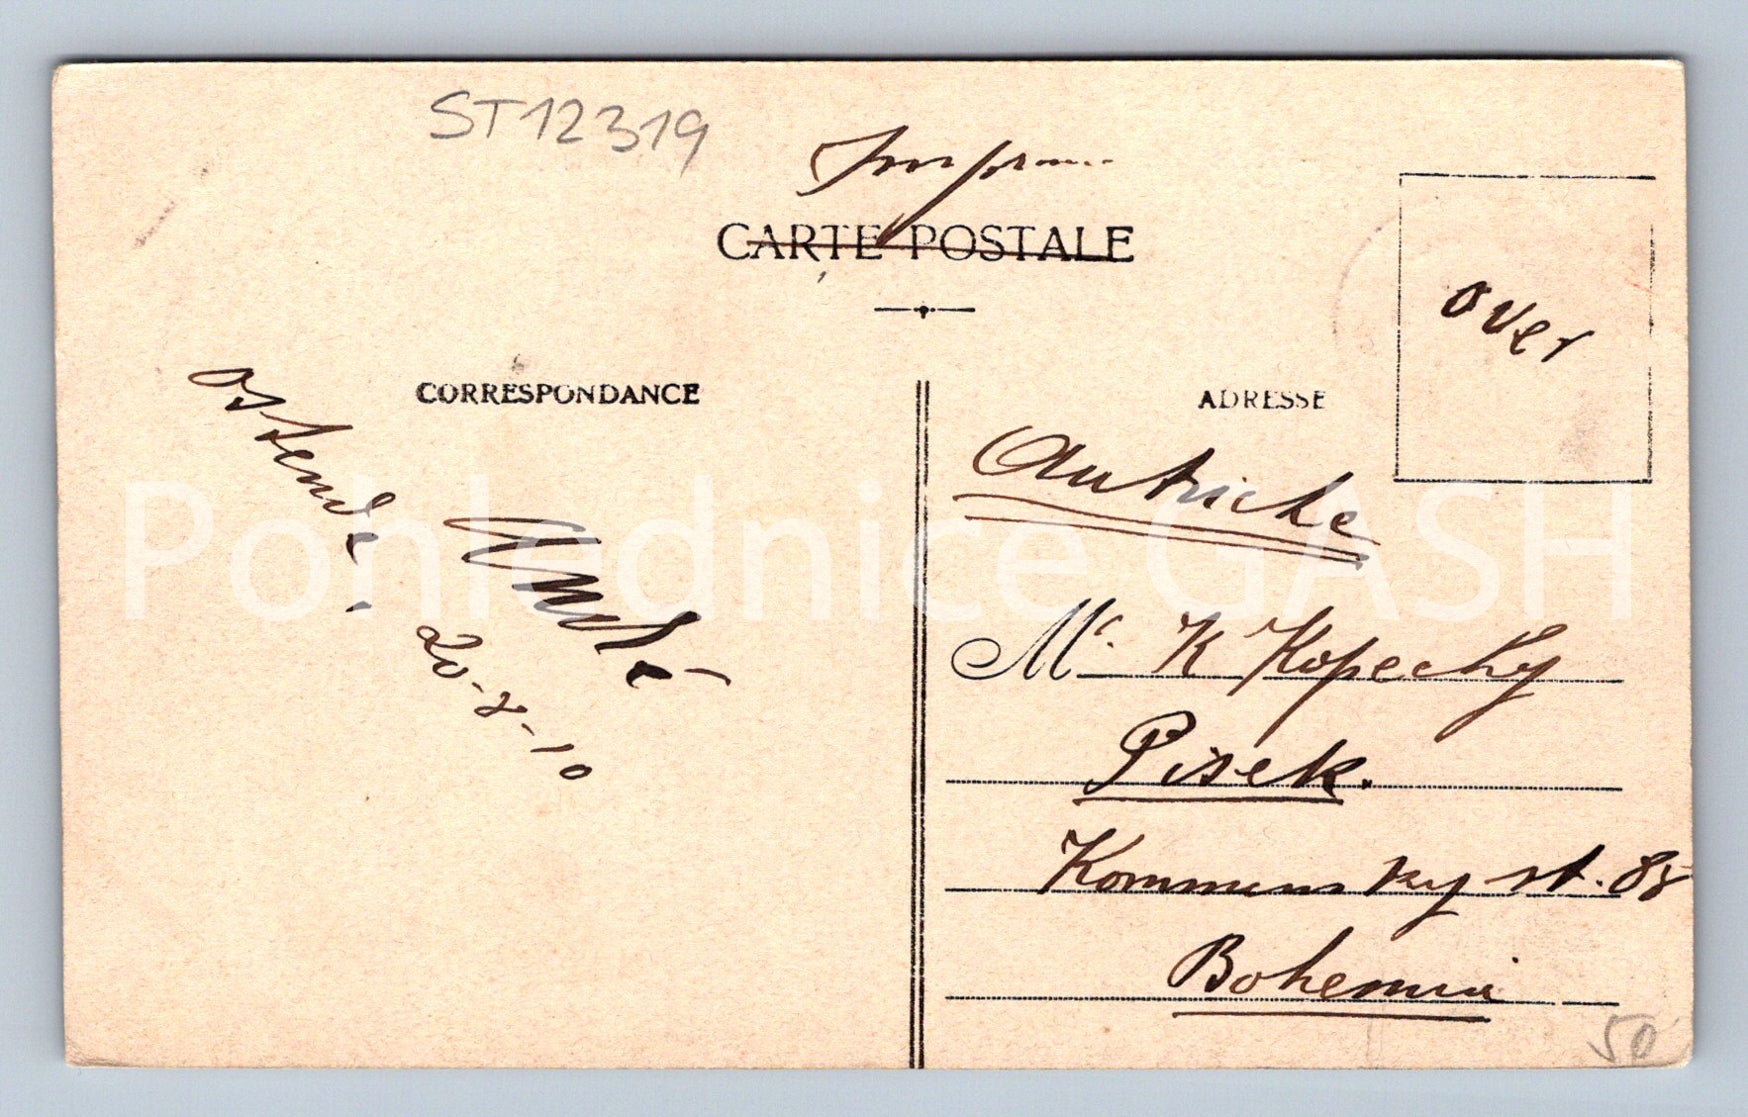 ST12319
CARTE POSTALE
over
CORRESPONDANCE
ADRESSE
Ostende
20-8-10
Autriche
Mr. K Kopecky
Pisek.
Kommensky st. 88
Bohemia
50
Pohlednice GASH